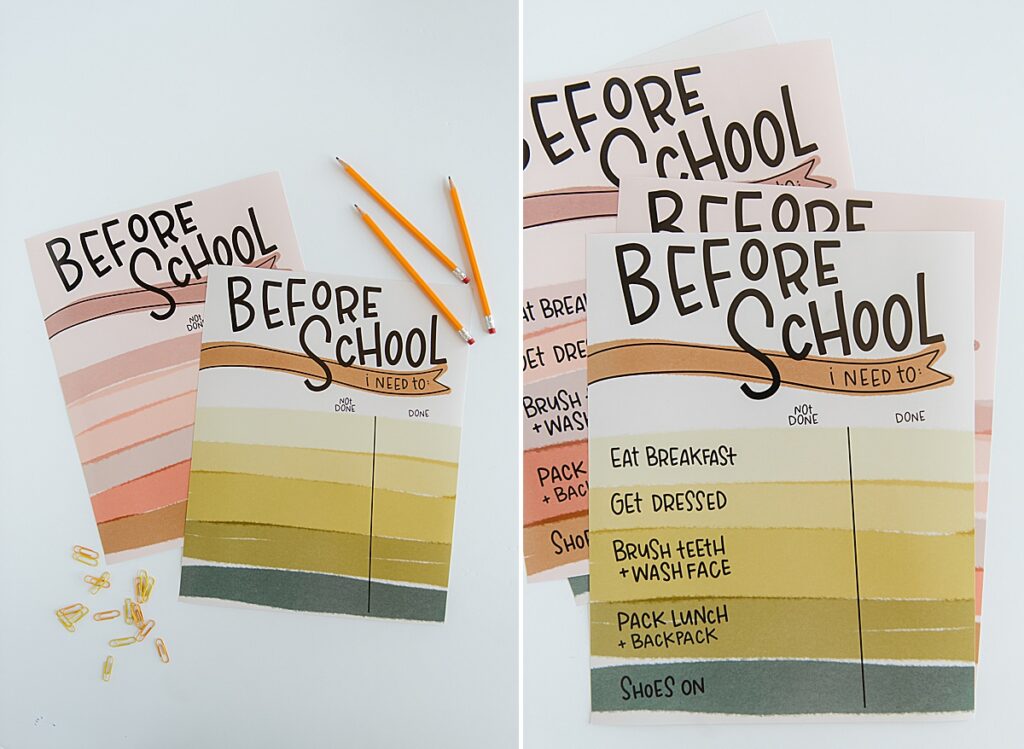 BEFORE
SCHOOL
NOT
DONE
BEFORE
SCHOOL
i NEED TO:
NOT
DONE
DONE
BEFORE
SCHOOL
TO:
EAT BREAK
GET DRES
BRUSH
+ WASH
PACK
+ BACK
SHO
BEFORE
BEFORE
SCHOOL
i NEED TO:
NOT
DONE
DONE
EAT BREAKFAST
GET DRESSED
BRUSH TEETH
+ WASH FACE
PACK LUNCH
+ BACKPACK
SHOES ON